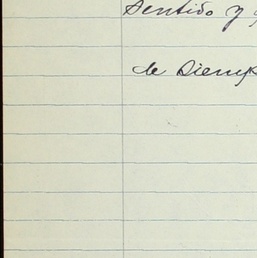 Sentido y
de siemp